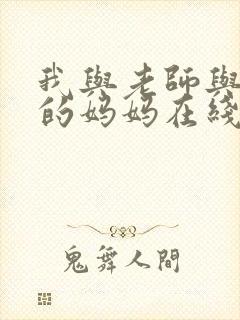 我與老師與
的媽媽在綫
鬼舞人間